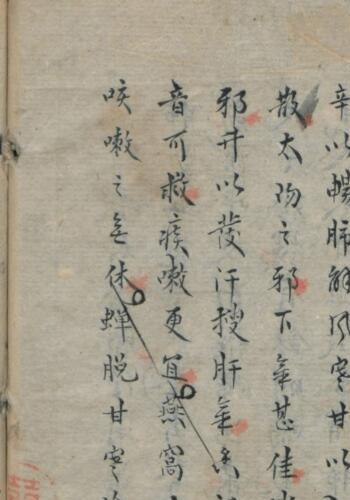 辛以暢肺解風寒甘以
散太陽之邪下氣甚佳
邪升以發汗搜肝氣
音可救痰嗽更宜燕窩
咳嗽之無休蟬脫甘寒